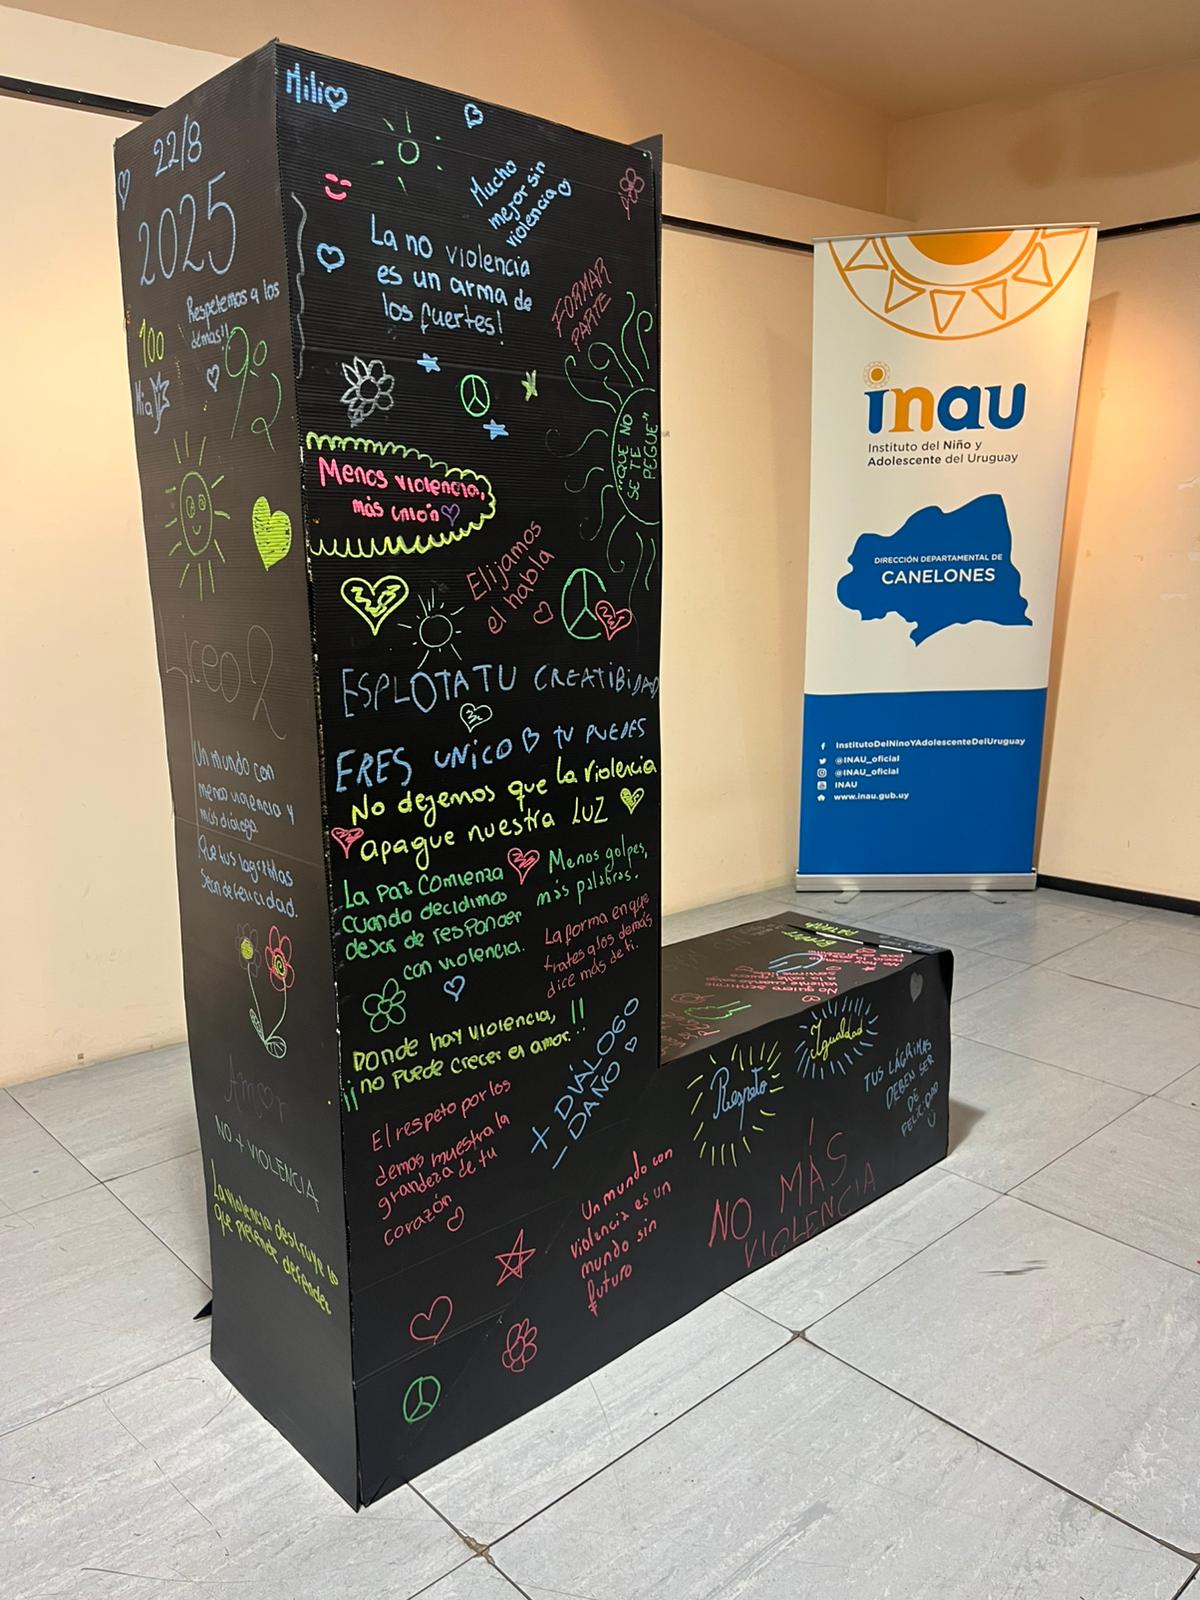 22/8
2025
Respetemos a los
demás!!
100
9º2
Mia
Liceo 2
Un mundo con
menos violencia y
más diálogo.
Que tus lagrimas
sean de felicidad.
Amor
NO + VIOLENCIA
La violencia destruye lo
que pretende defender
Mili
Mucho
mejor sin
violencia
La no violencia
es un arma de
los fuertes!
FORMAR
PARTE
"QUE NO
SE TE
PEGUE"
Menos violencia,
más unión
Elijamos
el habla
ESPLOTA TU CREATIBIDAD
ERES UNICO TU PUEDES
No dejemos que la violencia
apague nuestra LUZ
La paz comienza
cuando decidimos
dejar de responder
con violencia.
Menos golpes,
más palabras.
La forma en que
trates a los demás
dice más de ti.
Donde hay violencia,
¡¡no puede crecer el amor.!!
+ DIÁLOGO
- DAÑO
El respeto por los
demos muestra la
grandeza de tu
corazón
Un mundo con
violencia es un
mundo sin
futuro
Respeto
Igualdad
TUS LÁGRIMAS
DEBEN SER
DE
FELICIDAD
NO MÁS
VIOLENCIA
No quiero sentirme
valiente cuando salga
a la calle quiero
inau
Instituto del Niño y
Adolescente del Uruguay
DIRECCIÓN DEPARTAMENTAL DE
CANELONES
InstitutoDelNinoYAdolescenteDelUruguay
@INAU_oficial
@INAU_oficial
INAU
www.inau.gub.uy